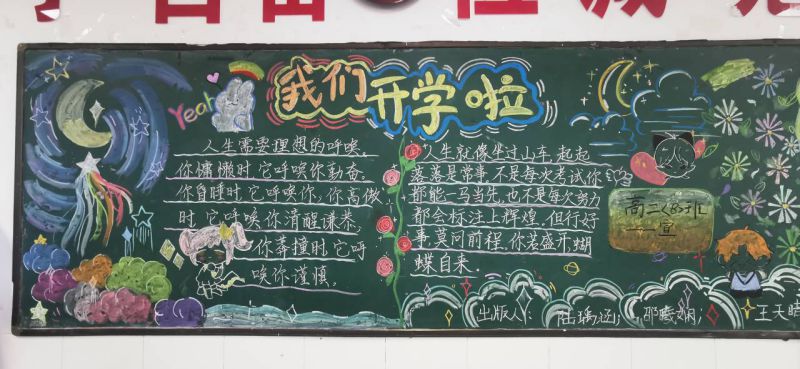 Yeah
我们开学啦
人生需要理想的呼唤,
你慵懒时,它呼唤你勤奋.
你昏睡时,它呼唤你,你高傲
时,它呼唤你清醒谦米,
你莽撞时它呼
唤你谨慎。
人生就像坐过山车,起起
落落是常事,不是每次考试你
都能一马当先,也不是每次努力
都会标注上辉煌,但行好
事,莫问前程,你若盛开,蝴
蝶自来.
高二(8)班
宣
出版人: